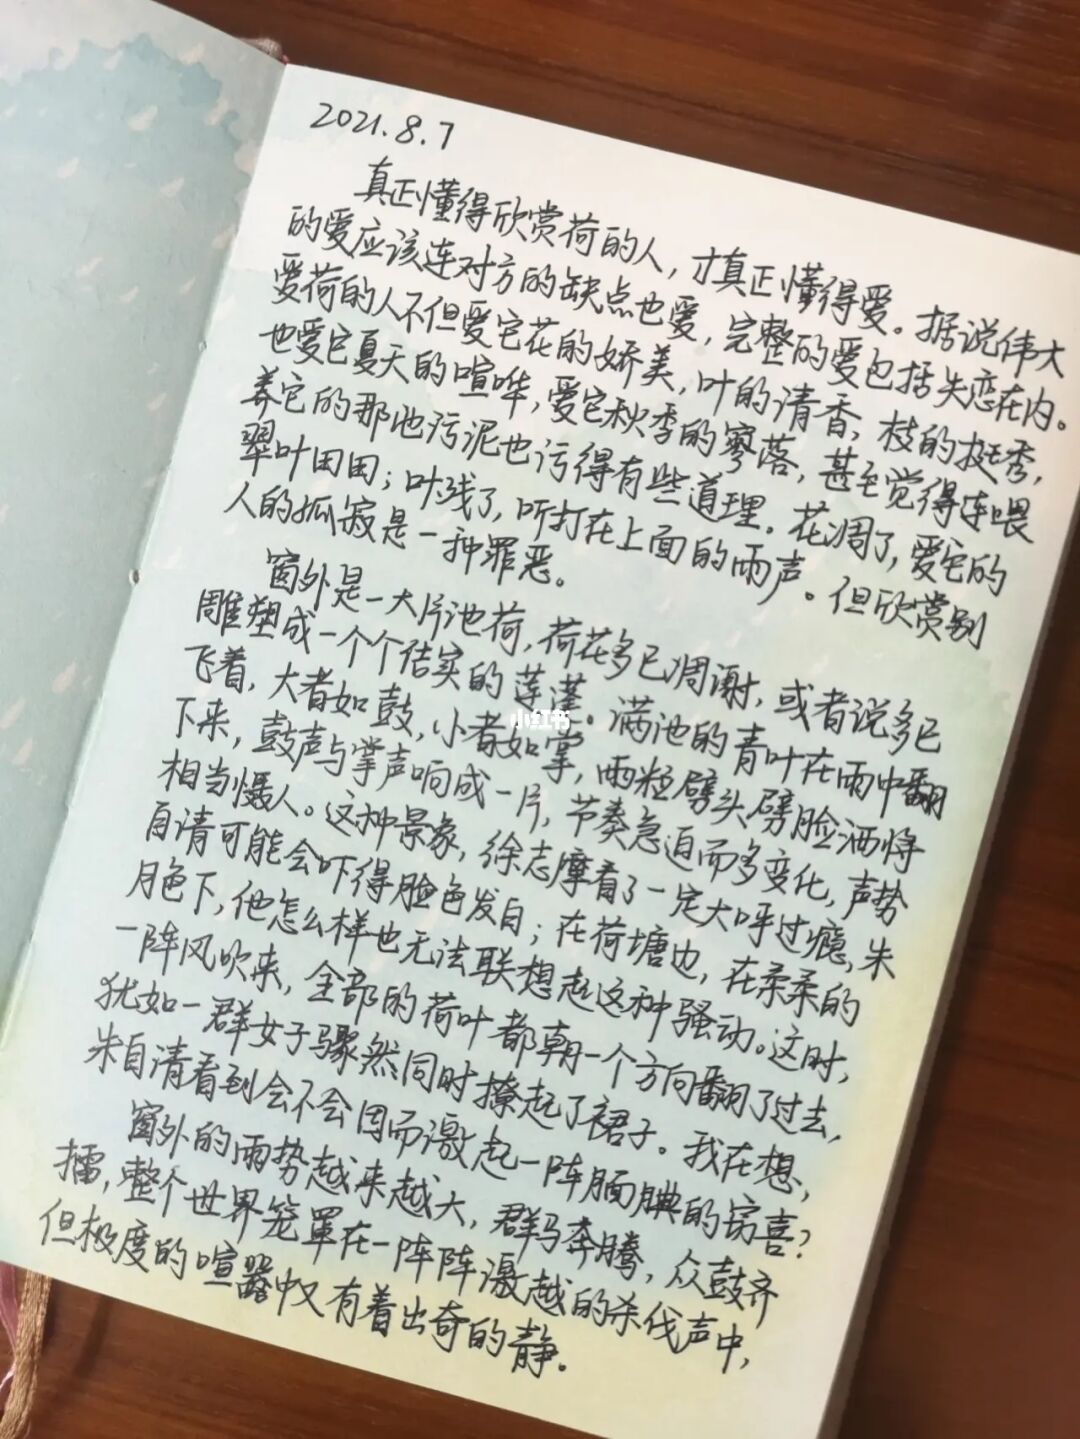 2021.8.7
真正懂得欣赏荷的人，才真正懂得爱。据说伟大
的爱应该连对方的缺点也爱，完整的爱包括失恋在内。
爱荷的人不但爱它花的娇美，叶的清香，枝的挺秀，
也爱它夏天的喧哗，爱它秋季的寥落，甚至觉得连喂
养它的那池污泥也污得有些道理。花凋了，爱它的
翠叶田田；叶残了，听打在上面的雨声。但欣赏别
人的孤寂是一种罪恶。
窗外是一大片池荷，荷花多已凋谢，或者说多已
雕塑成一个个结实的莲蓬。满池的青叶在雨中翻
飞着，大者如鼓，小者如掌，雨粒劈头劈脸洒将
下来，鼓声与掌声响成一片，节奏急迫而多变化，声势
相当慑人。这种景象，徐志摩看了一定大呼过瘾，朱
自清可能会吓得脸色发白；在荷塘边，在柔柔的
月色下，他怎么样也无法联想起这种骚动。这时，
一阵风吹来，全部的荷叶都朝一个方向翻了过去，
犹如一群女子骤然同时撩起了裙子。我在想，
朱自清看到会不会因而激起一阵腼腆的窃喜？
窗外的雨势越来越大，群马奔腾，众鼓齐
擂，整个世界笼罩在一阵阵激越的杀伐声中，
但极度的喧嚣中又有着出奇的静。
小红书